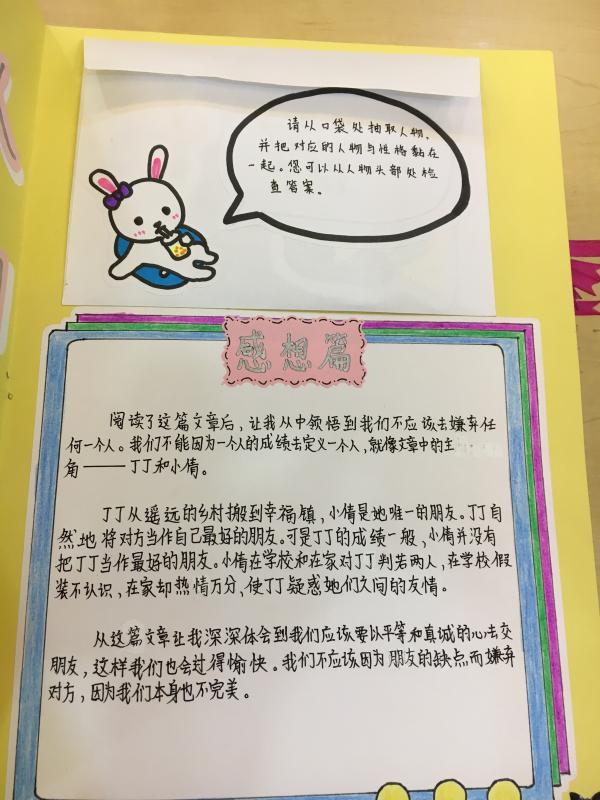 请从口袋处抽取人物,
并把对应的人物与性格黏在
一起。您可以从人物头部处检
查答案。
感想篇
阅读了这篇文章后，让我从中领悟到我们不应该去嫌弃任
何一个人。我们不能因为一个人的成绩去定义一个人，就像文章中的主
角——丁丁和小倩。
丁丁从遥远的乡村搬到幸福镇，小倩是她唯一的朋友。丁丁自
然地将对方当作自己最好的朋友。可是丁丁的成绩一般，小倩并没有
把丁丁当作最好的朋友。小倩在学校和在家对丁丁判若两人，在学校假
装不认识，在家却热情万分，使丁丁疑惑她们之间的友情。
从这篇文章让我深深体会到我们应该要以平等和真诚的心去交
朋友，这样我们也会过得愉快。我们不应该因为朋友的缺点而嫌弃
对方，因为我们本身也不完美。